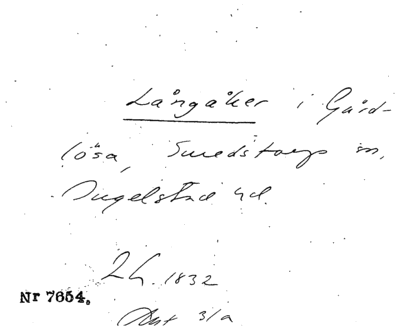 Långåker i Gård-
lösa, Smedstorps sn,
Ingelstad hd.
2h. 1832
Nr 7654.
Akt 31a